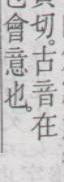 切。古音在
會意也。